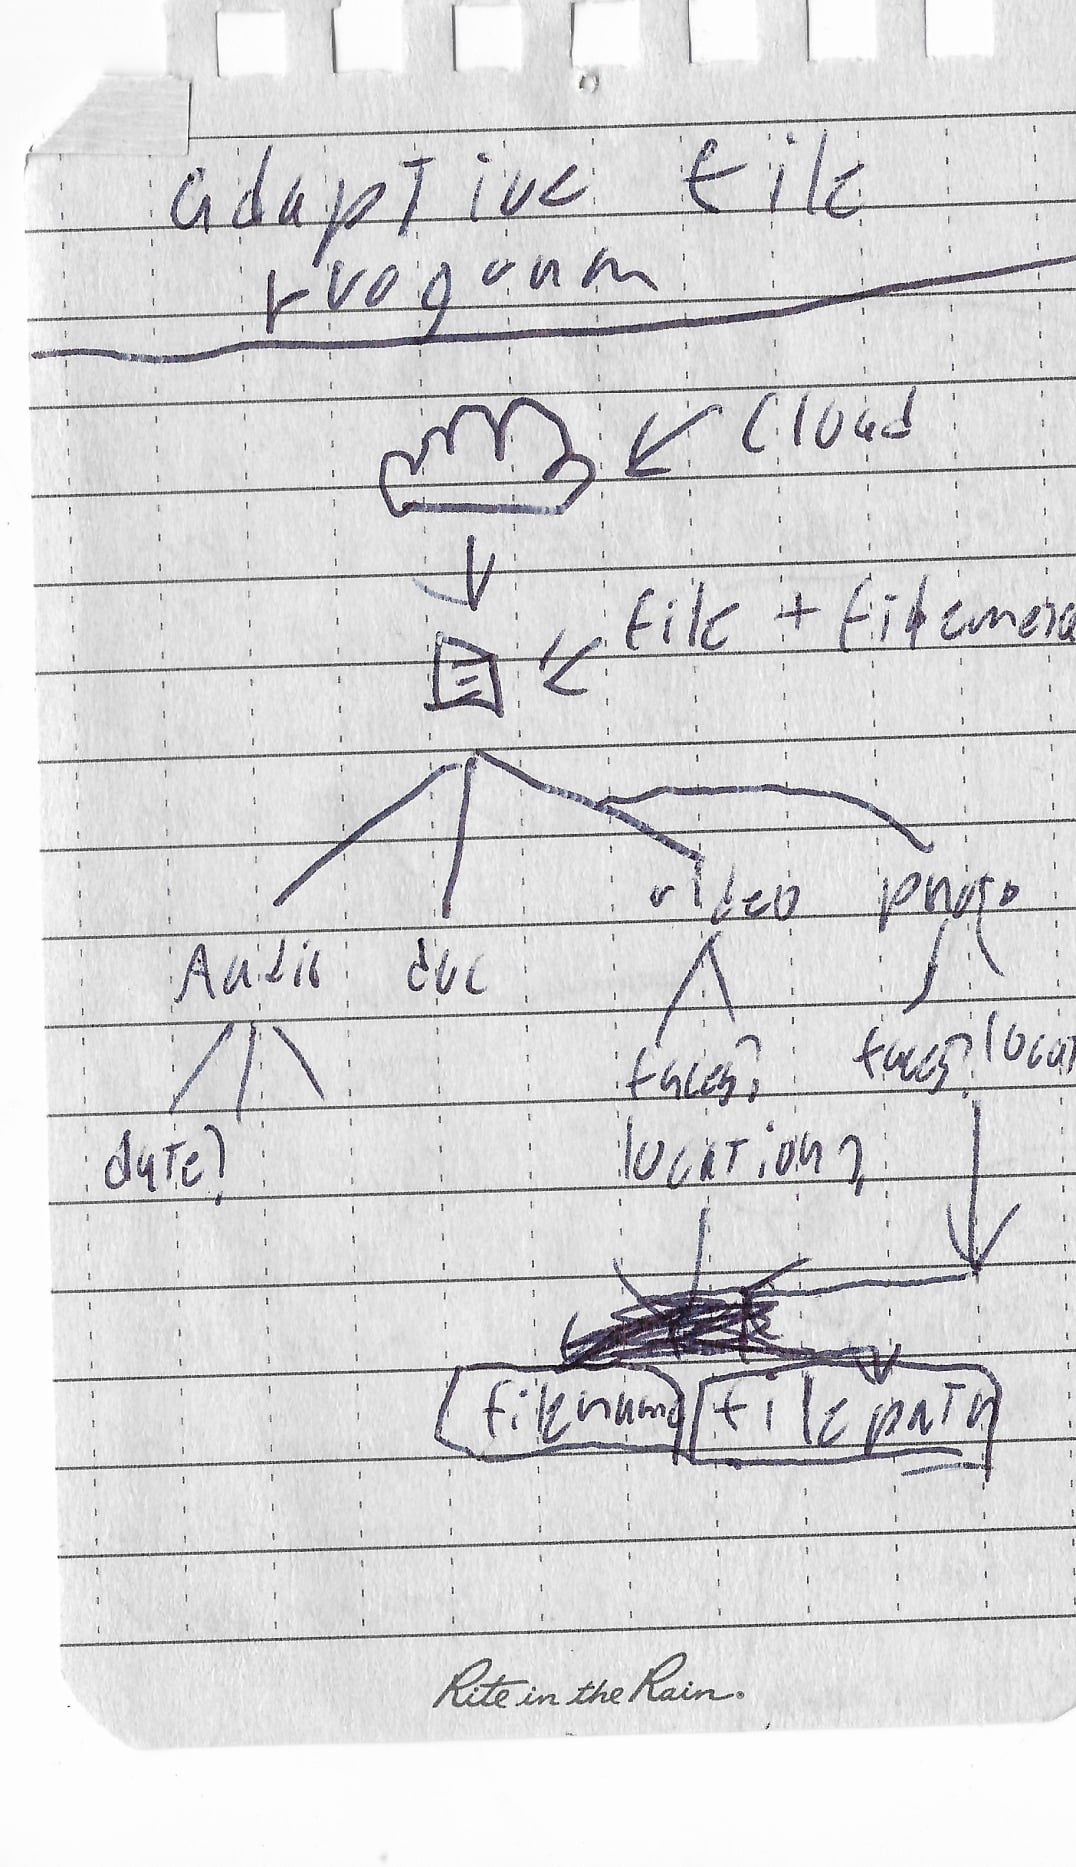 adaptive file
program
cloud
file +
Audio doc video photo
faces? faces? locat
date? location?
filename file path
Rite in the Rain.